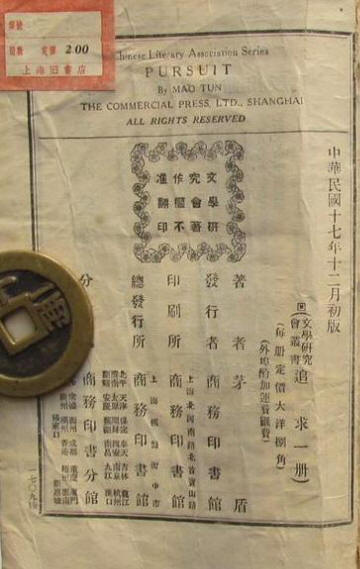 定價 2.00
上海旧書店
Chinese Literary Association Series
PURSUIT
By MAO TUN
THE COMMERCIAL PRESS, LTD., SHANGHAI
ALL RIGHTS RESERVED
中華民國十七年十二月初版
文學研究
會叢書
追求一册
(每册定價大洋捌角)
(外埠酌加運費匯費)
文學研
究會著
作權不
准翻印
著者 茅盾
發行者 商務印書館
上海北河南路北首寶山路
印刷所 商務印書館
上海棋盤街中市
總發行所 商務印書館
分
商務印書分館
一七〇九